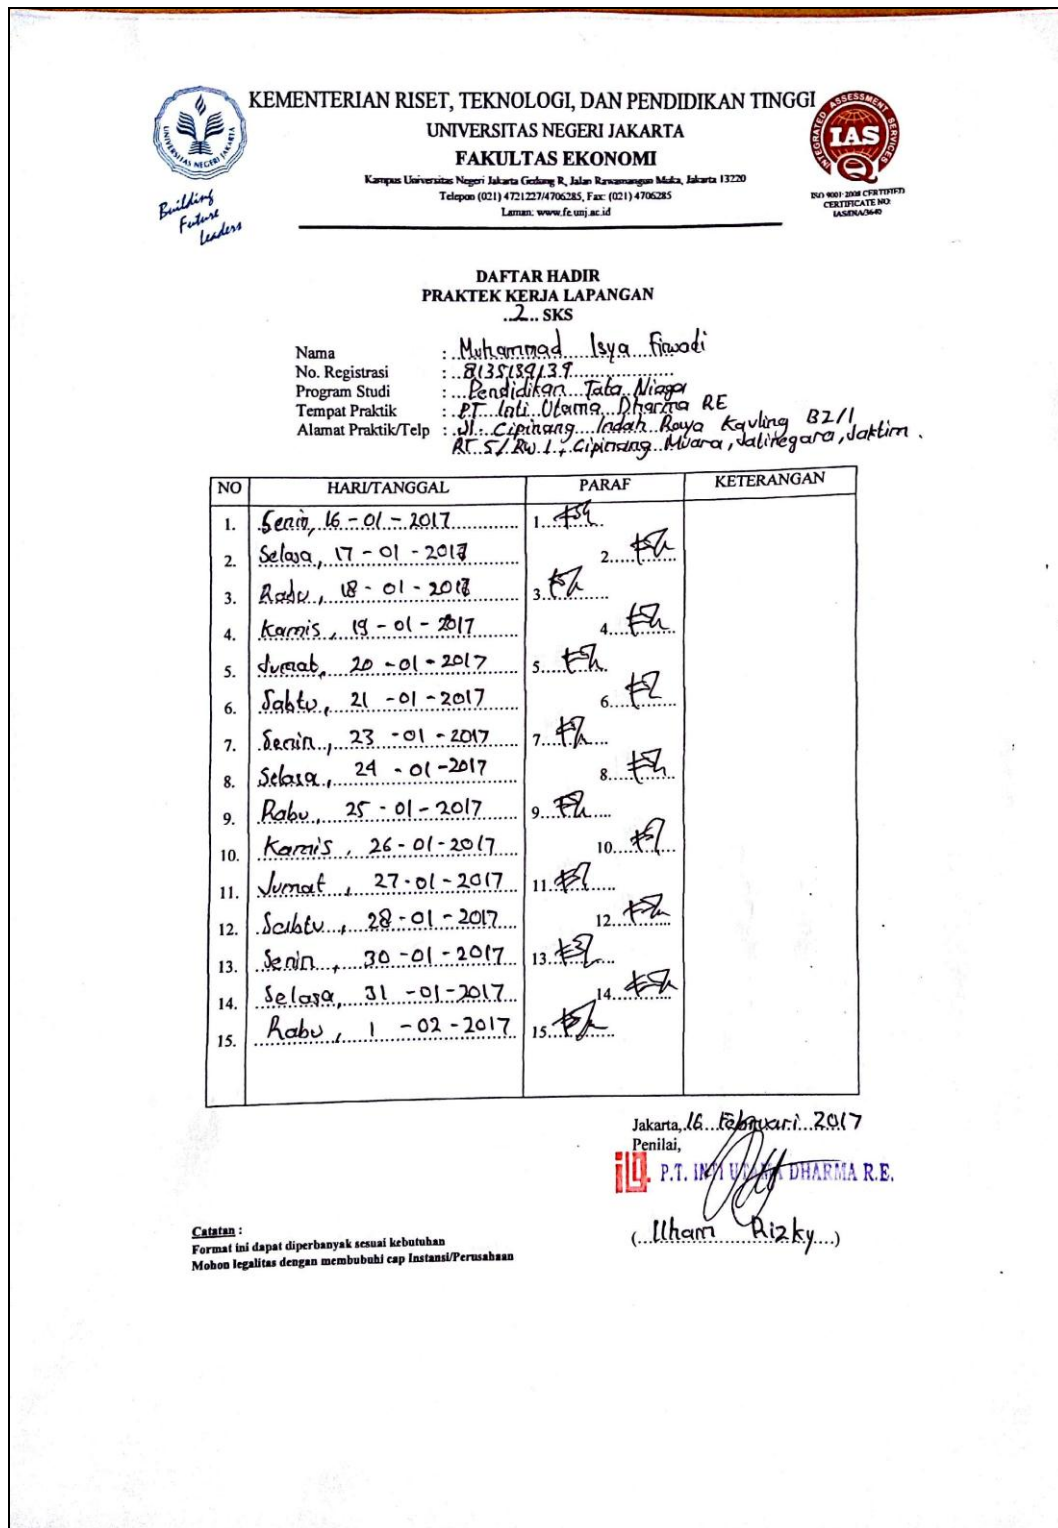 KEMENTERIAN RISET, TEKNOLOGI, DAN PENDIDIKAN TINGGI
UNIVERSITAS NEGERI JAKARTA
FAKULTAS EKONOMI
Kampus Universitas Negeri Jakarta Gedung R, Jalan Rawamangun Muka, Jakarta 13220
Telepon (021) 4721227/4706285, Fax: (021) 4706285
Laman: www.fe.unj.ac.id
UNIVERSITAS NEGERI JAKARTA
Building
Future
Leaders
INTEGRATED ASSESSMENT SERVICES
IAS
ISO 9001:2008 CERTIFIED
CERTIFICATE NO:
DAFTAR HADIR
PRAKTEK KERJA LAPANGAN
..2.. SKS
Nama : Muhammad Isya
No. Registrasi : 8135139139
Program Studi : Pendidikan Tata Niaga
Tempat Praktik : PT. Inti Utama Dharma RE
Alamat Praktik/Telp : Jl. Cipinang Indah Raya Kavling B2/1
RT. 5/RW. 1, Cipinang Muara, Jatinegara, Jaktim.
NO HARI/TANGGAL PARAF KETERANGAN
1. Senin, 16-01-2017 1.
2. Selasa, 17-01-2017 2.
3. Rabu, 18-01-2017 3.
4. Kamis, 19-01-2017 4.
5. Jumat, 20-01-2017 5.
6. Sabtu, 21-01-2017 6.
7. Senin, 23-01-2017 7.
8. Selasa, 24-01-2017 8.
9. Rabu, 25-01-2017 9.
10. Kamis, 26-01-2017 10.
11. Jumat, 27-01-2017 11.
12. Sabtu, 28-01-2017 12.
13. Senin, 30-01-2017 13.
14. Selasa, 31-01-2017 14.
15. Rabu, 1-02-2017 15.
Jakarta, 16 Februari 2017
Penilai,
P.T. INTI UTAMA DHARMA R.E.
(Ilham Rizky)
Catatan :
Format ini dapat diperbanyak sesuai kebutuhan
Mohon legalitas dengan membubuhi cap Instansi/Perusahaan